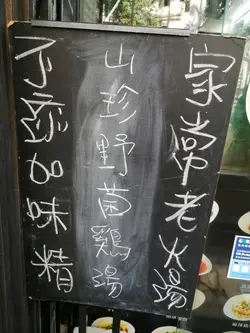 家常老火湯
山珍野菌鷄湯
不添加味精